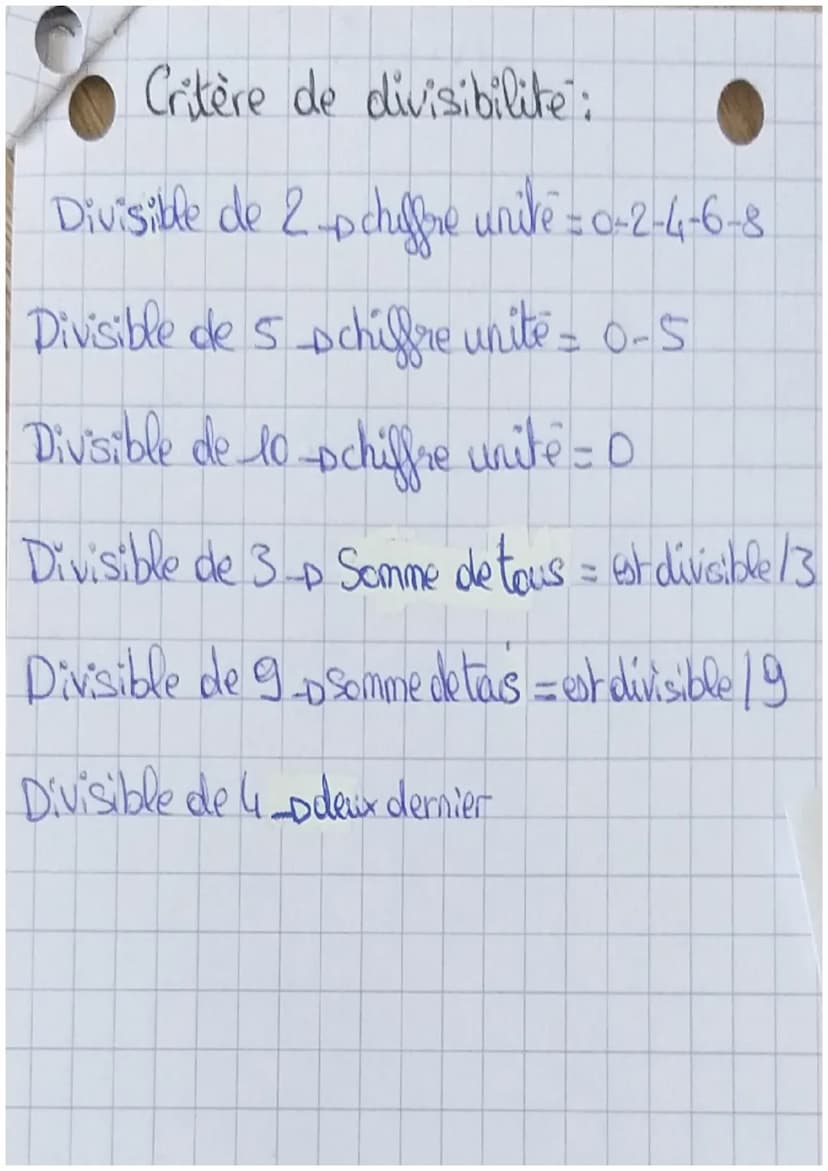 Critère de divisibilité :
Divisible de 2 → chiffre unité = 0-2-4-6-8
Divisible de 5 → chiffre unité = 0-5
Divisible de 10 → chiffre unité = 0
Divisible de 3 → Somme de tous = est divisible /3
Divisible de 9 → Somme de tous = est divisible /9
Divisible de 4 → deux dernier